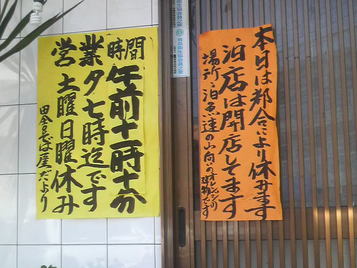 営業時間
午前十一時十分
夕七時迄です
土曜日曜休み
田舎そば屋だより
本日は都合により休みます
泊店は開店してます
場所、泊魚達の山向いの
建物です